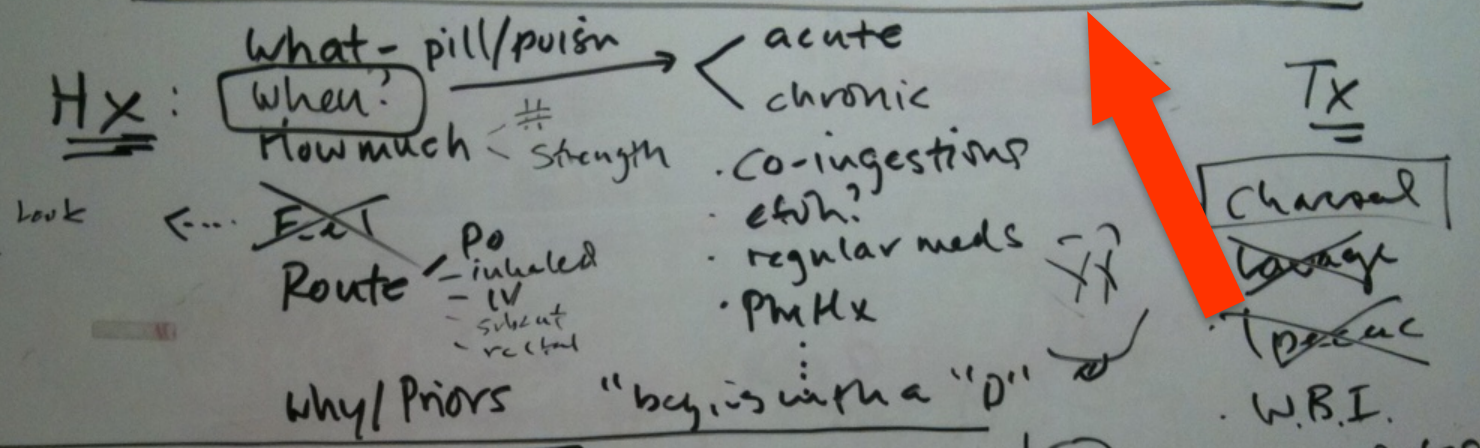 What - pill/poisn
acute
chronic
Hx:
When?
How much
#
Strength
Look
Route
PO
- inhaled
- IV
- subcut
- rectal
Why/Priors
· Co-ingestions
· etoh?
· regular meds
· PmHx
"begins with a "D"
Tx
Charcoal
Lavage
· Ipecac
· W.B.I.